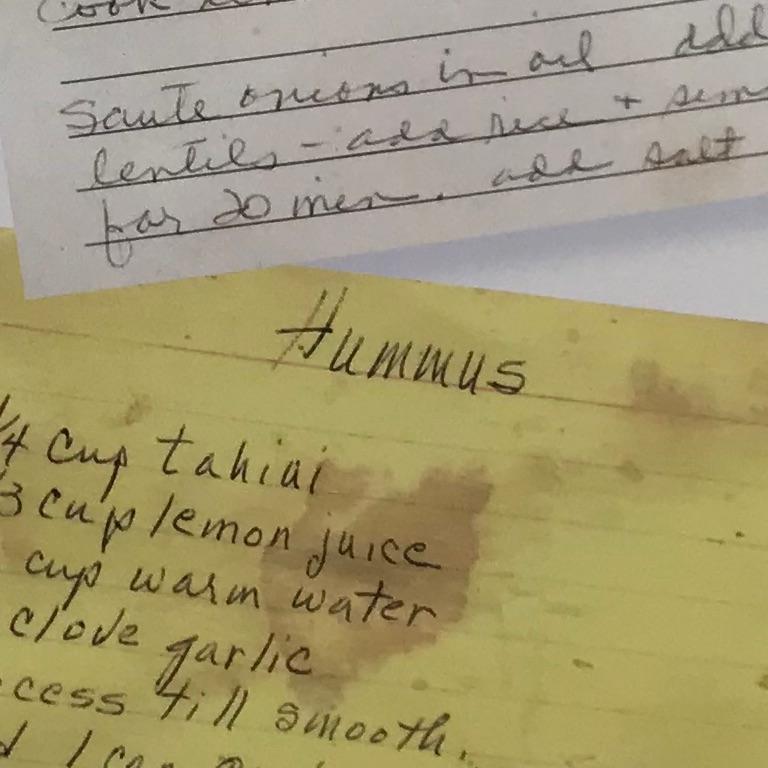 Cook
Saute onions in oil add
lentils - add rice + sim
for 20 min. add salt
Hummus
1/4 cup tahini
3 cup lemon juice
cup warm water
clove garlic
cess till smooth.
d 1 can